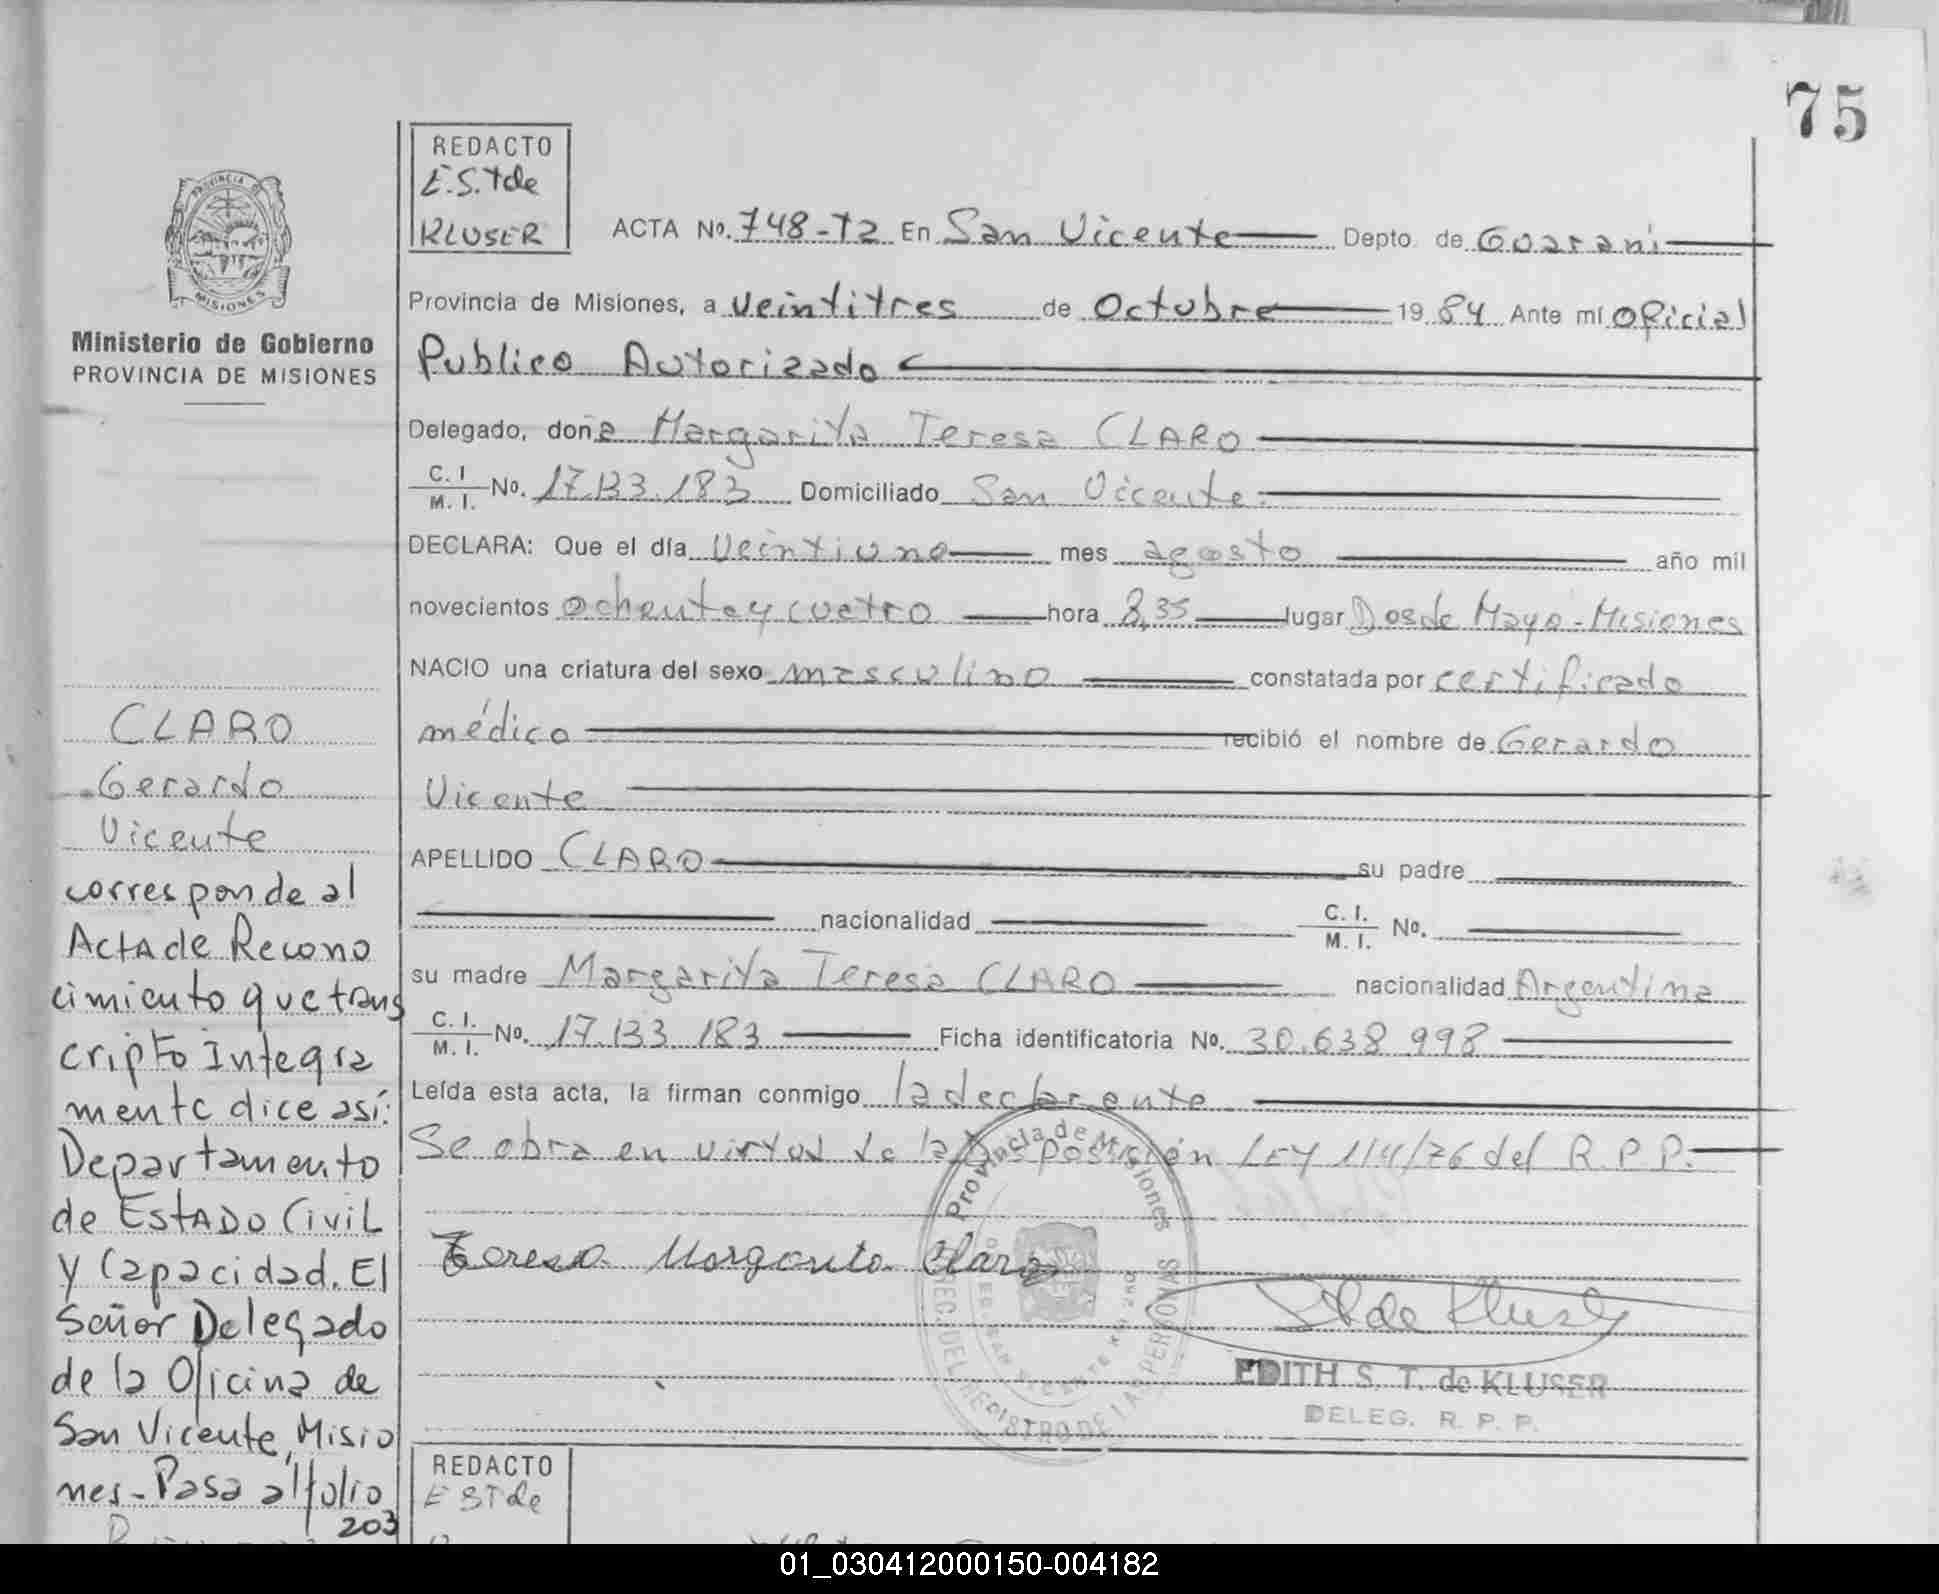 75
REDACTO
E.S.T de
KLUSER
ACTA Nº. 748-T2 En San Vicente Depto. de Guaraní
Provincia de Misiones, a veintitres de Octubre 1984 Ante mí Oficial
Publico Autorizado
Delegado, doña Margarita Teresa CLARO
C. I. M. I. Nº. 17.133.183 Domiciliado San Vicente.
DECLARA: Que el día veintiuno mes agosto año mil
novecientos ochenta y cuatro hora 8,35 lugar Dos de Mayo - Misiones
NACIO una criatura del sexo masculino constatada por certificado
médico recibió el nombre de Gerardo
Vicente
APELLIDO CLARO su padre
nacionalidad C. I. M. I. Nº.
su madre Margarita Teresa CLARO nacionalidad Argentina
C. I. M. I. Nº. 17.133 183 Ficha identificatoria Nº. 30.638 998
Leída esta acta, la firman conmigo la declarente
Se obra en virtud de la Disposición LEY 114/76 del R.P.P.
Teresa Margarita Claro
Provincia de Misiones
REC. DEL REGISTRO DE LAS PERSONAS
ST de Kluser
EDITH S. T. de KLUSER
DELEG. R. P. P.
PROVINCIA DE
MISIONES
Ministerio de Gobierno
PROVINCIA DE MISIONES
CLARO
Gerardo
Vicente
corresponde al
Acta de Recono
cimiento que trans
cripto Integra
mente dice así:
Departamento
de ESTADO CiviL
y Capacidad. El
Señor Delegado
de la Oficina de
San Vicente, Misio
nes - Pasa al folio
203
REDACTO
E ST de
01_030412000150-004182